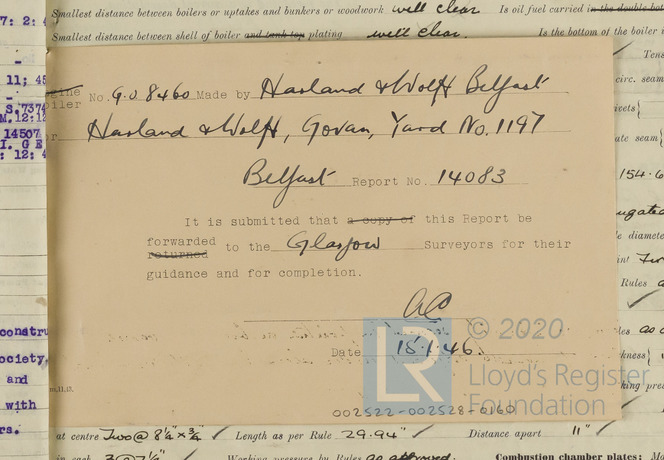 7: 2: 4
Smallest distance between boilers or uptakes and bunkers or woodwork well clear Is oil fuel carried in the double bot
Smallest distance between shell of boiler and tank top plating well clear. Is the bottom of the boiler in
11; 45
S.7374
M.12:12
14507
I. G E
: 12: 4
gine
oiler No. G.O 8460 Made by Harland & Wolff Belfast
or Harland & Wolff, Govan, Yard No. 1197
Belfast Report No. 14083
It is submitted that a copy of this Report be
forwarded
returned to the Glasgow Surveyors for their
guidance and for completion.
AC
Date 15.1.46.
002522-002528-0160
m,11,17.
LR © 2020
Lloyd's Register
Foundation
constru
ociety,
and
with
rs.
Tens
circ. seam
ivets
ate seam
154.6
ugated
e diameter
int Two
Rules a
les as a
kness
king pres
at centre Two @ 8¼" x ¾" Length as per Rule 29.94" Distance apart 11"
in each 3 @ 7¼" Working pressure by Rules as approved. Combustion chamber plates: Ma